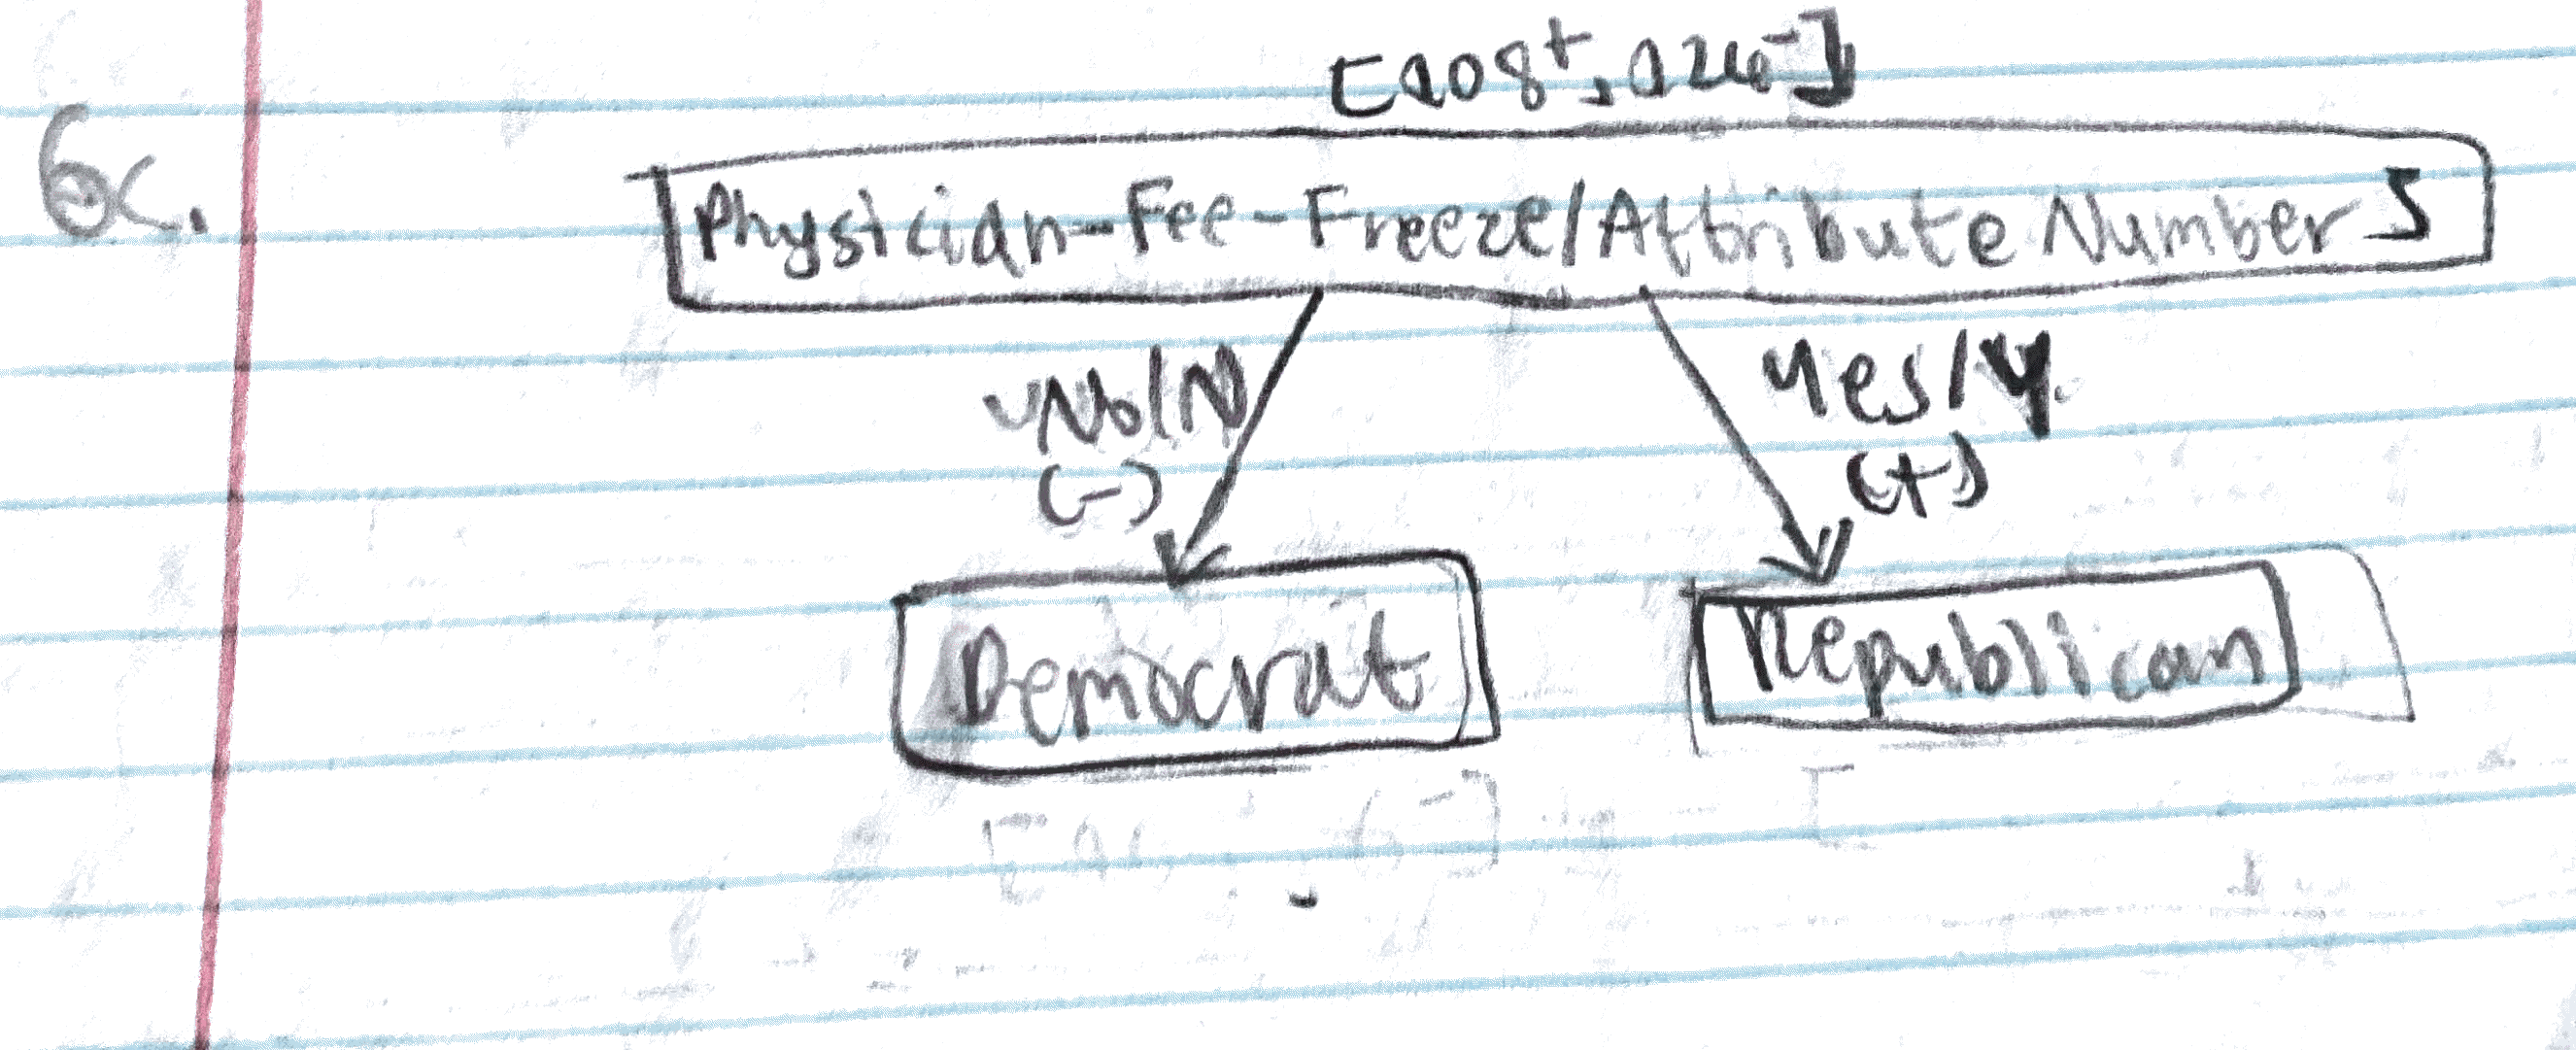 [108+, 124-]
6c.
Physician-Fee-Freeze/Attribute Number 5
No/N Yes/Y
(-) (+)
Democrat Republican